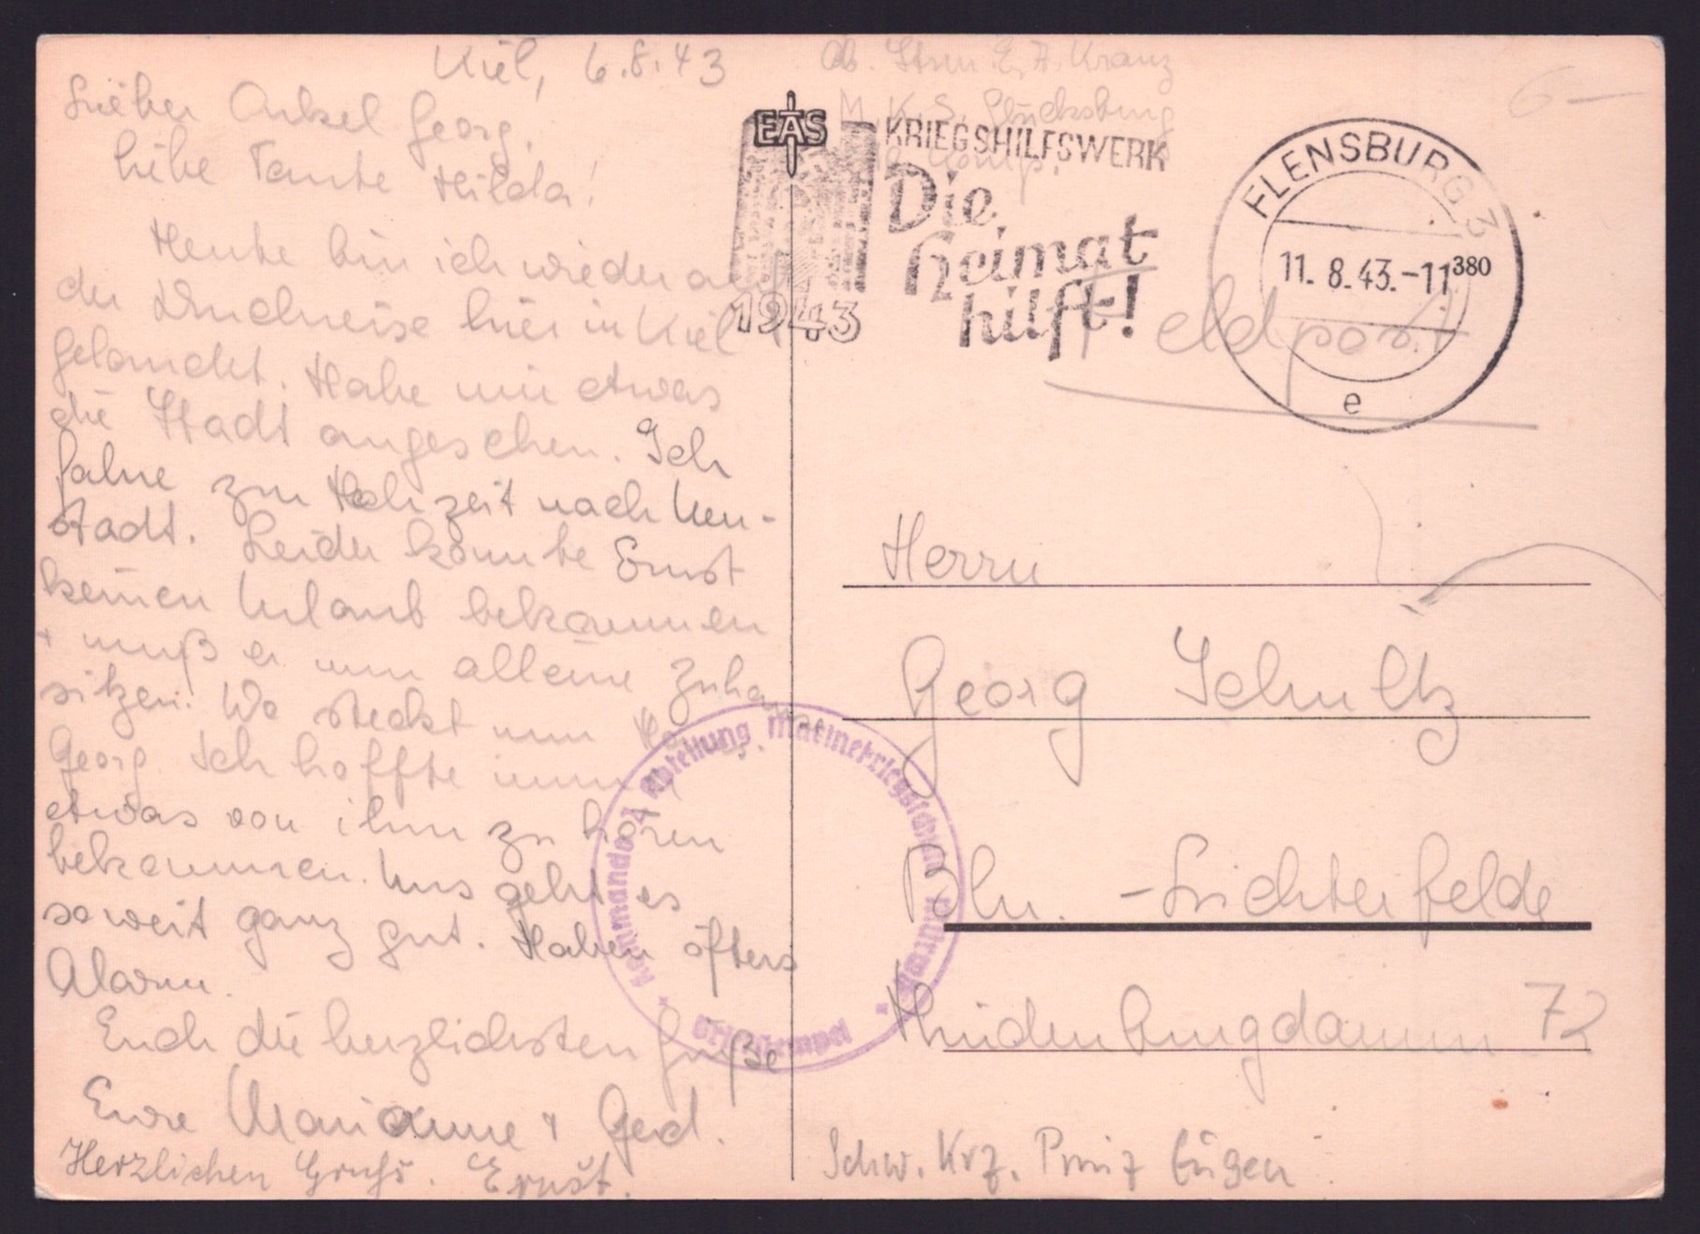 Kiel, 6.8.43
Lieber Onkel Georg,
liebe Tante Hilda!
Heute bin ich wieder auf
der Durchreise hier in Kiel
gelandet. Habe mir etwas
die Stadt angesehen. Ich
fahre zur Hochzeit nach Neu-
stadt. Leider konnte Ernst
keinen Urlaub bekommen
+ muß er nun alleine zuhause
sitzen. Wo steckt nun
Georg. Ich hoffte immer
etwas von ihm zu hören
bekommen. Uns geht es
soweit ganz gut. Haben öfters
Alarm.
Euch die herzlichsten Grüße
Eure Marianne + Gerd.
Herzlichen Gruß. Ernst.
Kranz
M.K.S. Glücksburg
Komp.
EAS
1943
KRIEGSHILFSWERK
Die
Heimat
hilft!
FLENSBURG 3
11.8.43.-11 380
e
Feldpost
6-
Herrn
Georg Schultz
Bln. -Lichterfelde
Hindenburgdamm 72
Schw. Krz. Prinz Eugen
Kommando 4. Abteilung Marinekriegsschule Mürwik
Briefstempel